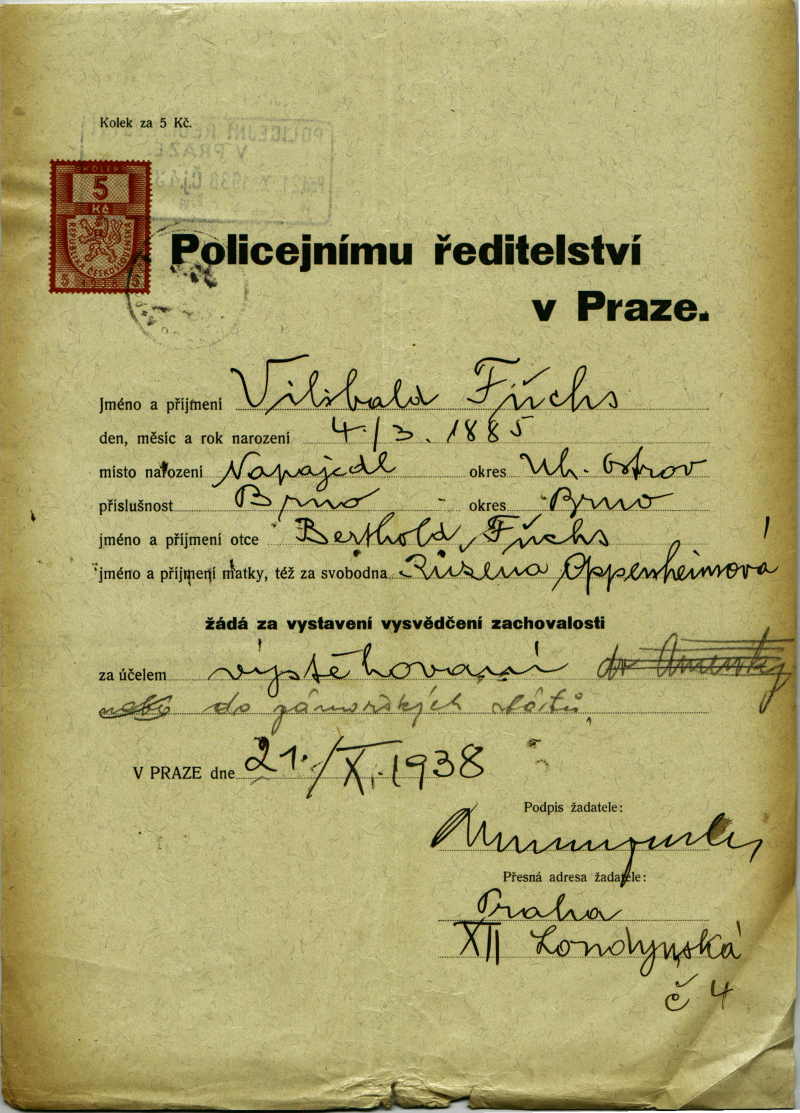 Kolek za 5 Kč.
POLICEJNÍ ŘEDI
V PRAZE
1938
KOLEK
5
Kč
REPUBLIKA ČESKOSLOVENSKÁ
5 5
Policejnímu ředitelství
v Praze.
Jméno a příjmení Vilibald Fuchs
den, měsíc a rok narození 4./3. 1885
místo narození Napajedl okres Uh. Ostrov
příslušnost Brno okres Brno
jméno a příjmení otce Berthold Fuchs
jméno a příjmení matky, též za svobodna Růžena Oppenheimová
žádá za vystavení vysvědčení zachovalosti
za účelem vystěhování do Ameriky
nebo do zámořských států
V PRAZE dne 21./X. 1938
Podpis žadatele:
Přesná adresa žadatele:
Praha
XII Londýnská
č 4